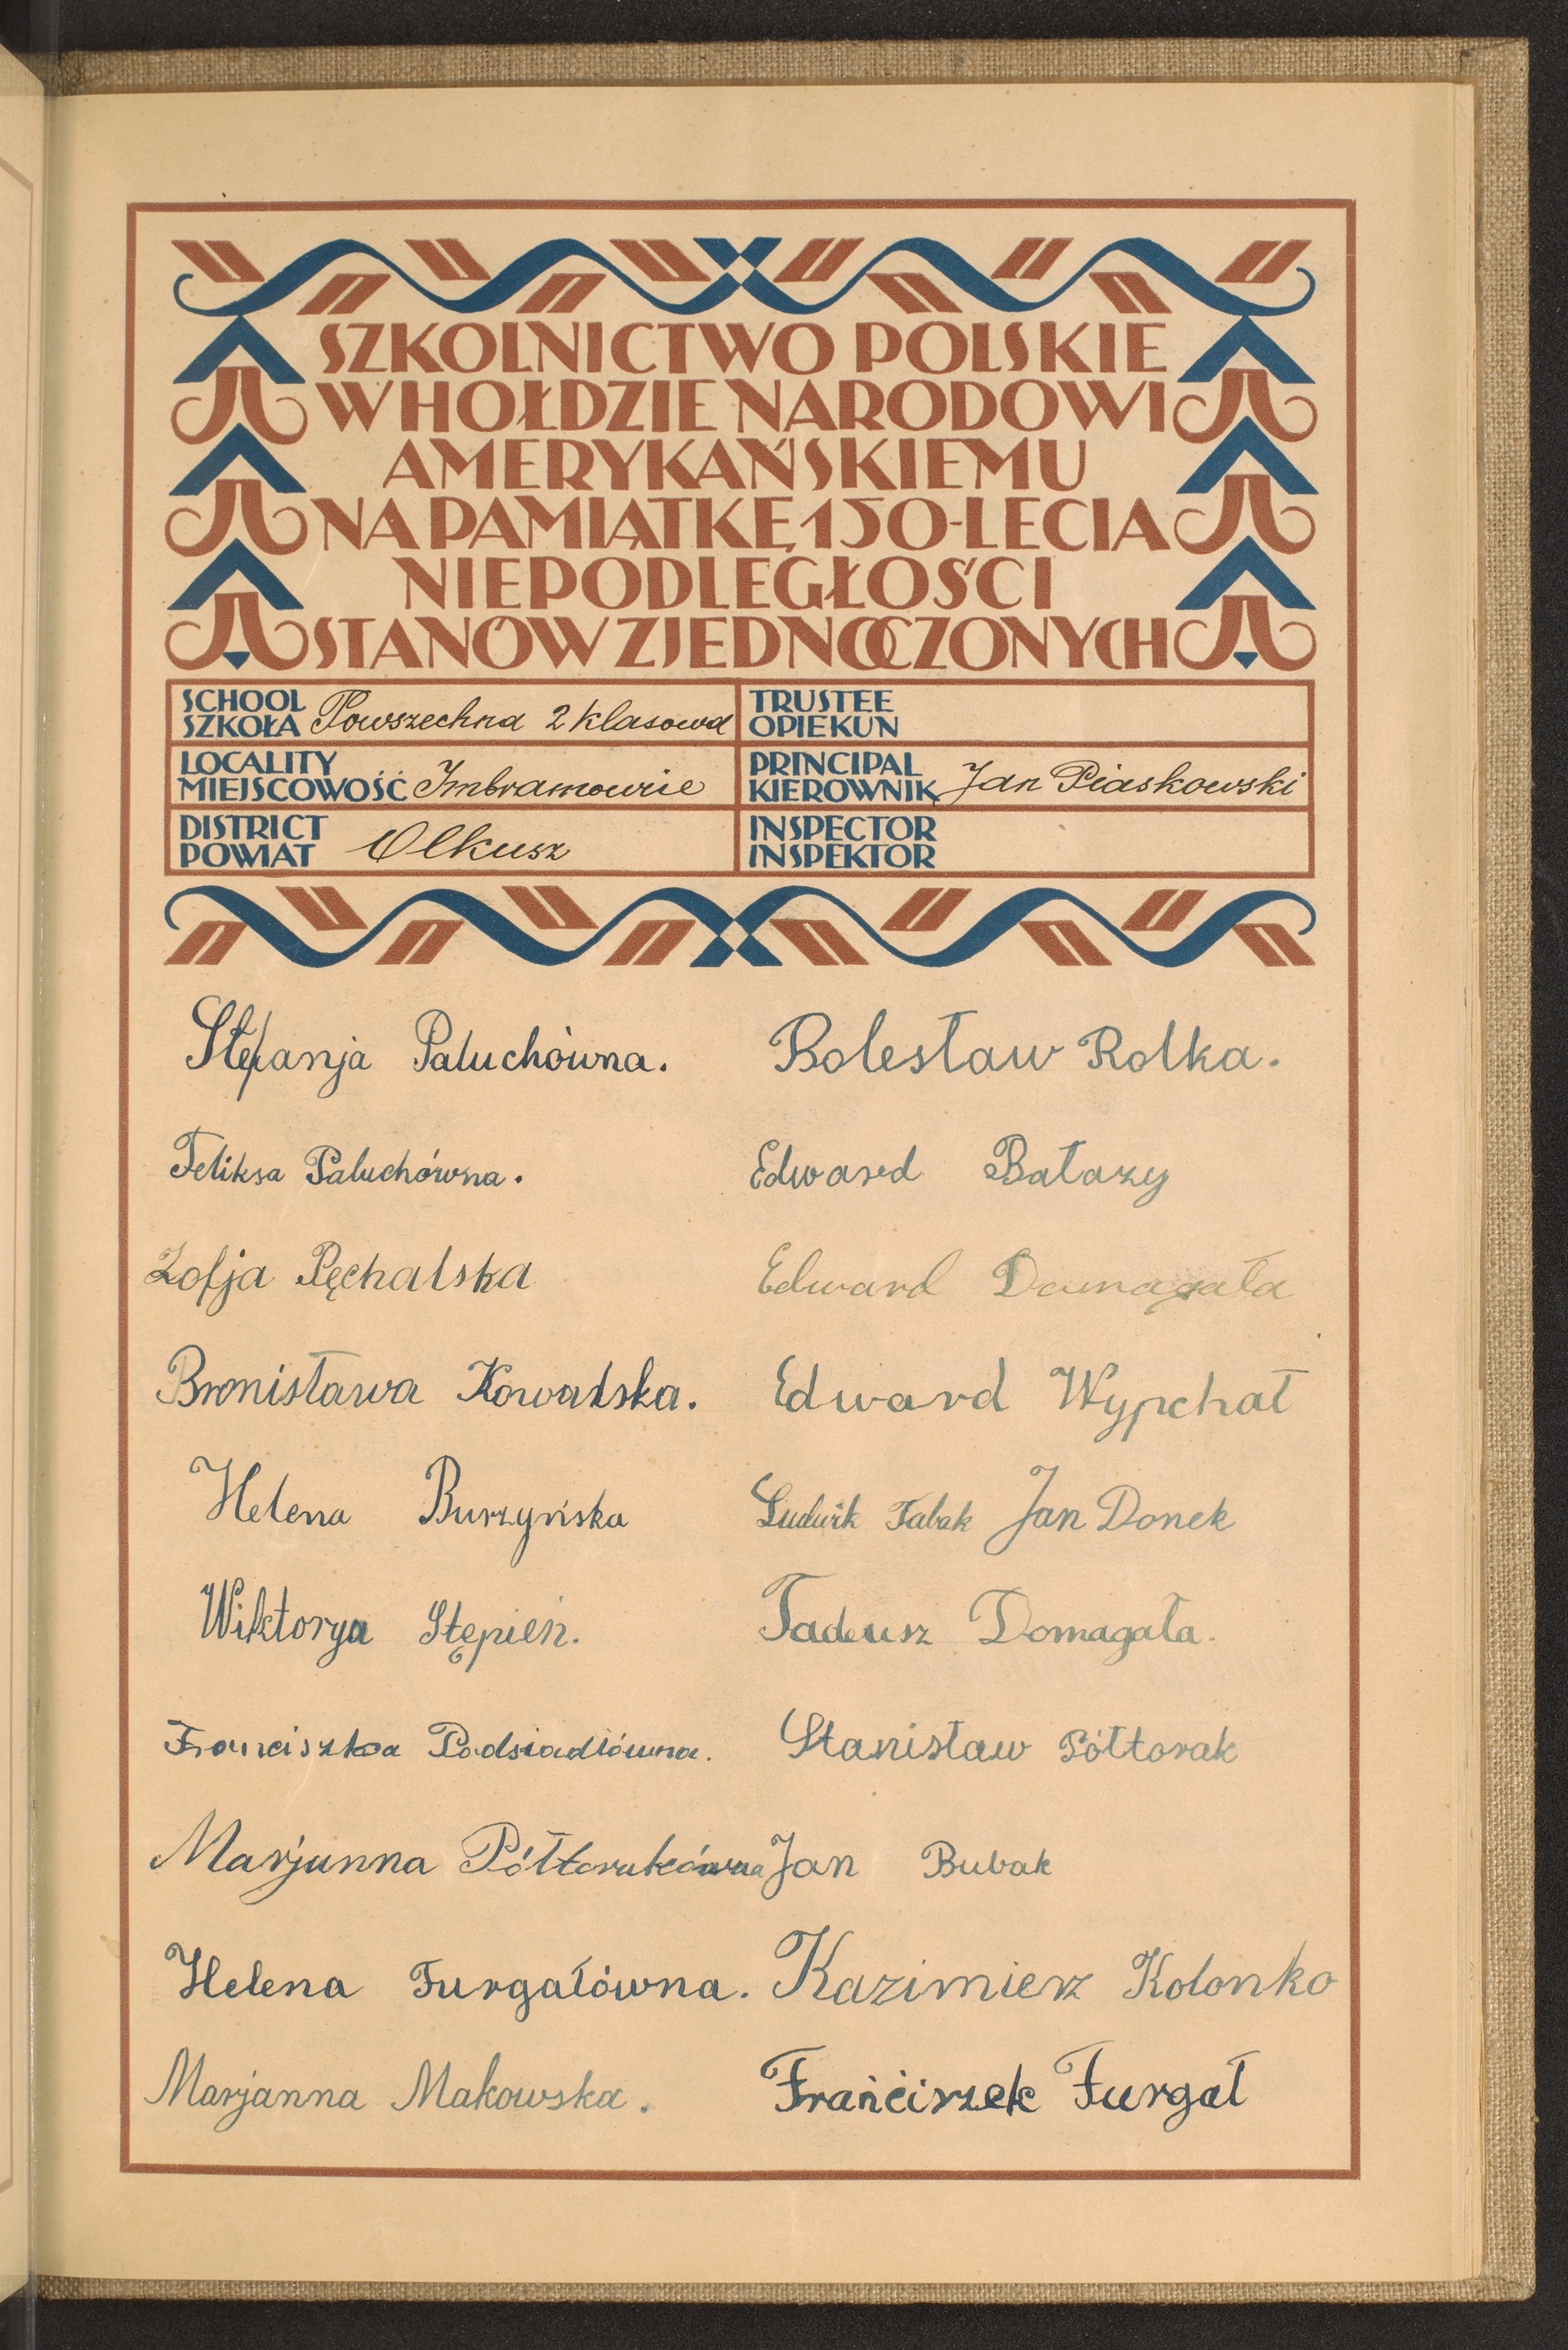 SZKOLNICTWO POLSKIE
W HOŁDZIE NARODOWI
AMERYKAŃSKIEMU
NA PAMIĄTKĘ 150-LECIA
NIEPODLEGŁOŚCI
STANÓW ZJEDNOCZONYCH
SCHOOL
SZKOŁA Powszechna 2 klasowa
TRUSTEE
OPIEKUN
LOCALITY
MIEJSCOWOŚĆ Imbramowie
PRINCIPAL
KIEROWNIK Jan Piaskowski
DISTRICT
POWIAT Olkusz
INSPECTOR
INSPEKTOR
Stefanja Paluchówna.
Feliksa Paluchówna.
Zofja Pęchalska
Bronisława Kowalska.
Helena Burzyńska
Wiktorya Stępień.
Franciszka Podsiadłówna.
Marjanna Półtorakówna
Helena Furgałówna.
Marjanna Makowska.
Bolesław Rolka.
Edward Bałazy
Edward Domagała
Edward Wypchał
Ludwik Tabak Jan Donek
Tadeusz Domagała.
Stanisław Półtorak
Jan Bubak
Kazimierz Kolonko
Franciszek Furgał